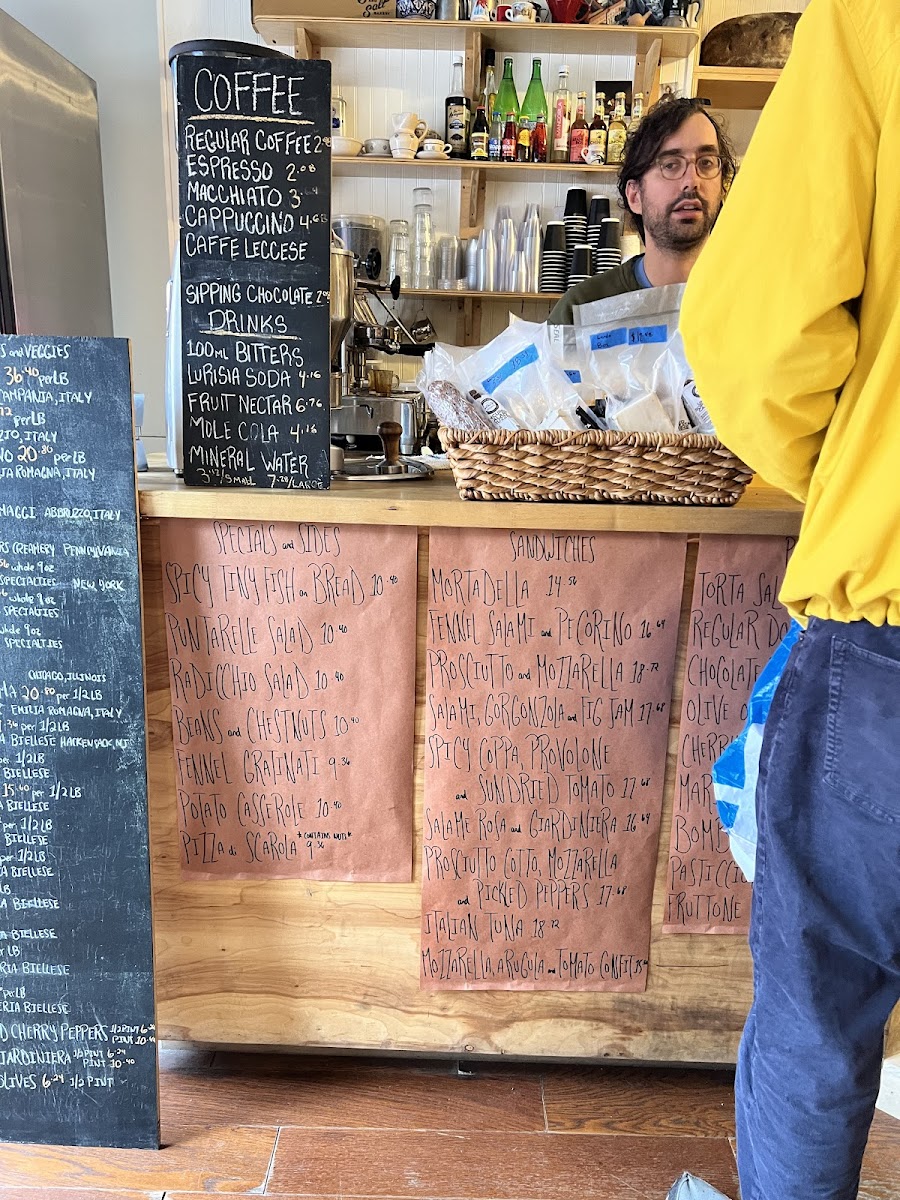 COFFEE
REGULAR COFFEE 2.
ESPRESSO 2.08
MACCHIATO 3.
CAPPUCCINO 4.68
CAFFE LECCESE
SIPPING CHOCOLATE 2.08
DRINKS
100ML BITTERS
LURISIA SODA 4.16
FRUIT NECTAR 6.76
MOLE COLA 4.16
MINERAL WATER
3.12/SMALL 7.28/LARGE
S and VEGGIES
36.40 per LB
CAMPANIA, ITALY
per LB
ZIO, ITALY
NO 20.86 per LB
IA ROMAGNA, ITALY
MAGGI ABBRUZZO, ITALY
RS CREAMERY PENNYLVANIA
whole 9oz
SPECIALTIES NEW YORK
whole 9oz
SPECIALTIES
whole 9oz
SPECIALTIES
CHICAGO, ILLINOIS
MA 20.80 per 1/2 LB
EMILIA ROMAGNA, ITALY
.36 per 1/2 LB
A BIELLESE HACKENSACK, NJ
per 1/2 LB
BIELLESE
15.60 per 1/2 LB
A BIELLESE
per 1/2 LB
BIELLESE
per 1/2 LB
A BIELLESE
LB
A BIELLESE
IA BIELLESE
r LB
RIA BIELLESE
per LB
ERIA BIELLESE
D CHERRY PEPPERS 1/2 PINT 6.24
PINT 10.40
IARDINIERA 1/2 PINT 6.24
PINT 10.40
OLIVES 6.24 1/2 PINT
SPECIALS and SIDES
SPICY TINY FISH on BREAD 10.40
PUNTARELLE SALAD 10.40
RADICCHIO SALAD 10.40
BEANS and CHESTNUTS 10.40
FENNEL GRATINATI 9.36
POTATO CASSEROLE 10.40
PIZZA di SCAROLA *CONTAINS NUTS* 9.36
SANDWICHES
MORTADELLA 14.56
FENNEL SALAMI and PECORINO 16.64
PROSCIUTTO and MOZZARELLA 18.72
SALAMI, GORGONZOLA and FIG JAM 17.68
SPICY COPPA, PROVOLONE
and SUNDRIED TOMATO 17.68
SALAME ROSA and GIARDINIERA 16.64
PROSCIUTTO COTTO, MOZZARELLA
and PICKED PEPPERS 17.68
ITALIAN TUNA 18.72
MOZZARELLA, ARUGULA and TOMATO CONFIT
TORTA SAL
REGULAR DO
CHOCOLATE
OLIVE O
CHERRY
MAR
BOMB
PASTICCI
FRUTTONE